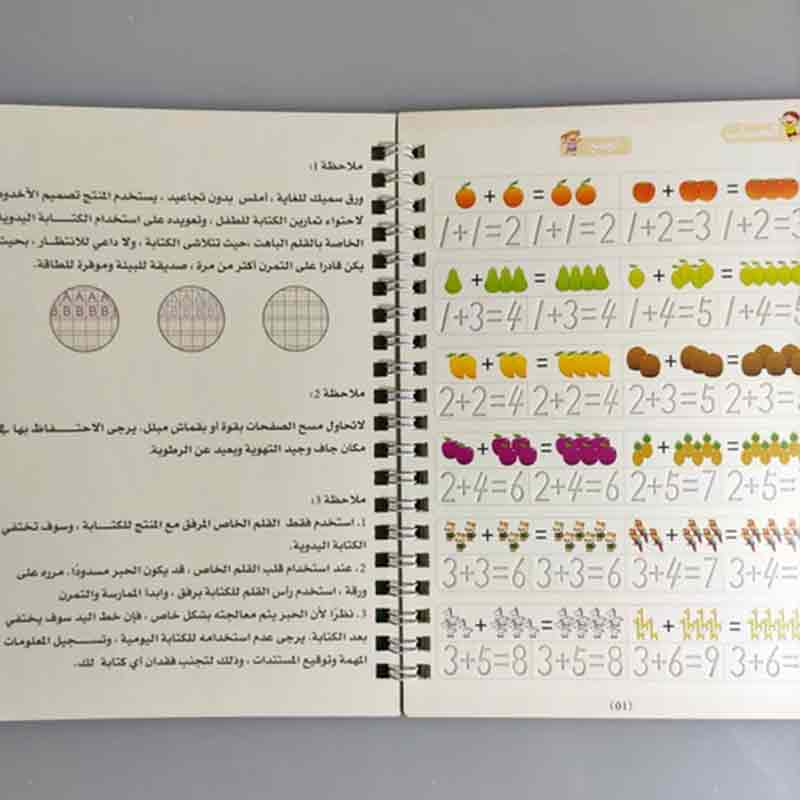 ملاحظة 1:
ورق سميك للغاية ، أملس بدون تجاعيد ، يستخدم المنتج تصميم الأخدود
لاحتواء تمارين الكتابة للطفل ، وتعويده على استخدام الكتابة اليدوية
الخاصة بالقلم الباهت ،حيث تتلاشى الكتابة ، ولا داعي للانتظار ، بحيث
يكن قادرا على التمرن أكثر من مرة ، صديقة للبيئة وموفرة للطاقة.
A A A A
B B B B
A A A A
B B B B
ملاحظة 2:
لاتحاول مسح الصفحات بقوة أو بقماش مبلل، يرجى الاحتفاظ بها في
مكان جاف وجيد التهوية وبعيد عن الرطوبة.
ملاحظة 3:
1. استخدم فقط القلم الخاص المرفق مع المنتج للكتابة ، وسوف تختفي
الكتابة اليدوية.
2. عند استخدام قلب القلم الخاص ، قد يكون الحبر مسدودًا، مرره على
ورقة ، استخدم رأس القلم للكتابة برفق ، وابدا الممارسة والتمرن
3. نظرًا لأن الحبر يتم معالجته بشكل خاص ، فإن خط اليد سوف يختفي
بعد الكتابة، يرجى عدم استخدامه للكتابة اليومية ، وتسجيل المعلومات
المهمة وتوقيع المستندات ، وذلك لتجنب فقدان أي كتابة لك.
+ = + =
1+1=2 1+1=2 1+2=3 1+2=3
+ = + =
1+3=4 1+3=4 1+4=5 1+4=5
+ = + =
2+2=4 2+2=4 2+3=5 2+3=
+ = + =
2+4=6 2+4=6 2+5=7 2+5=
+ = + =
3+3=6 3+3=6 3+4=7 3+4=
+ = + =
3+5=8 3+5=8 3+6=9 3+6=
(01)